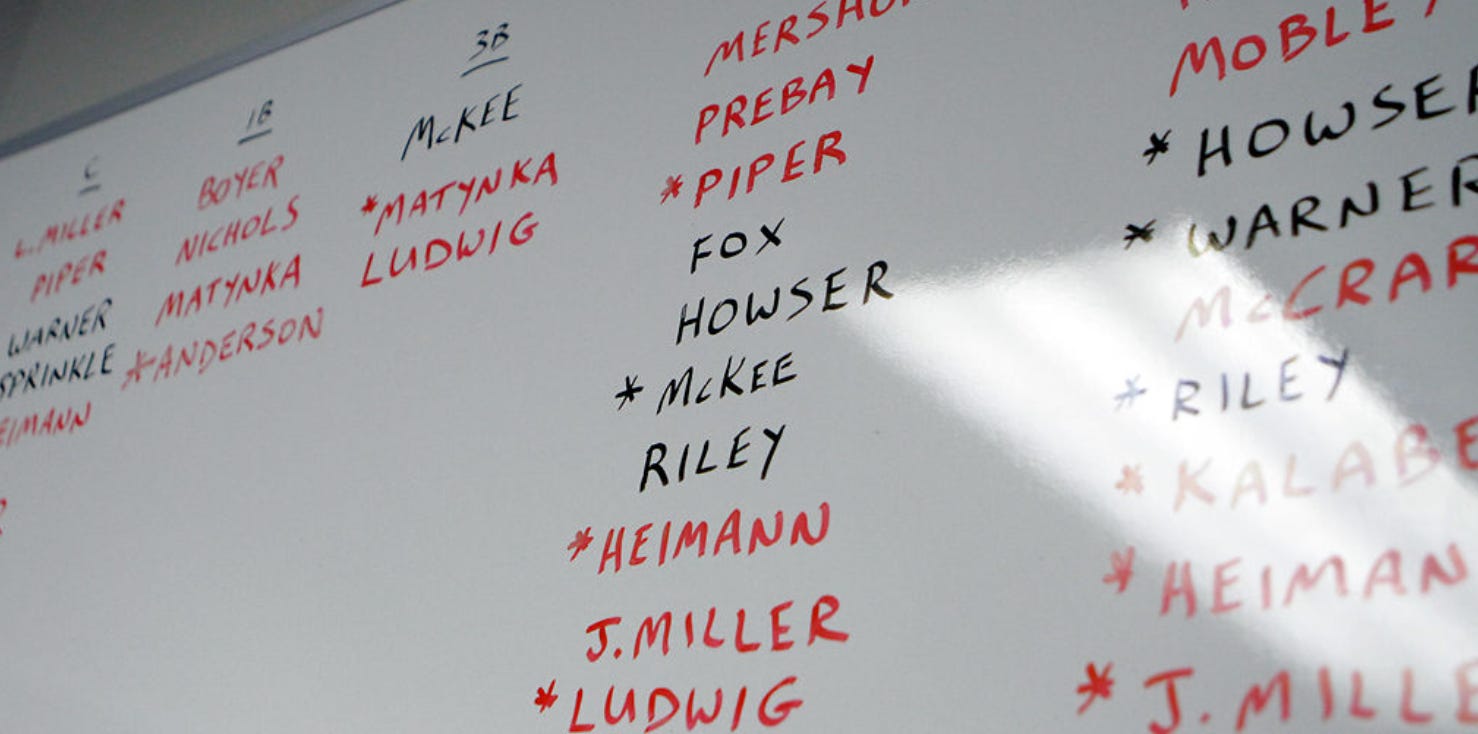 C
L. MILLER
PIPER
WARNER
SPRINKLE
EIMANN
R
1B
BOYER
NICHOLS
MATYNKA
*ANDERSON
3B
McKEE
*MATYNKA
LUDWIG
MERSHO
PREBAY
*PIPER
FOX
HOWSER
* McKEE
RILEY
*HEIMANN
J. MILLER
*LUDWIG
MOBLEY
* HOWSER
* WARNER
McCRAR
* RILEY
* KALABE
* HEIMAN
* J. MILLE